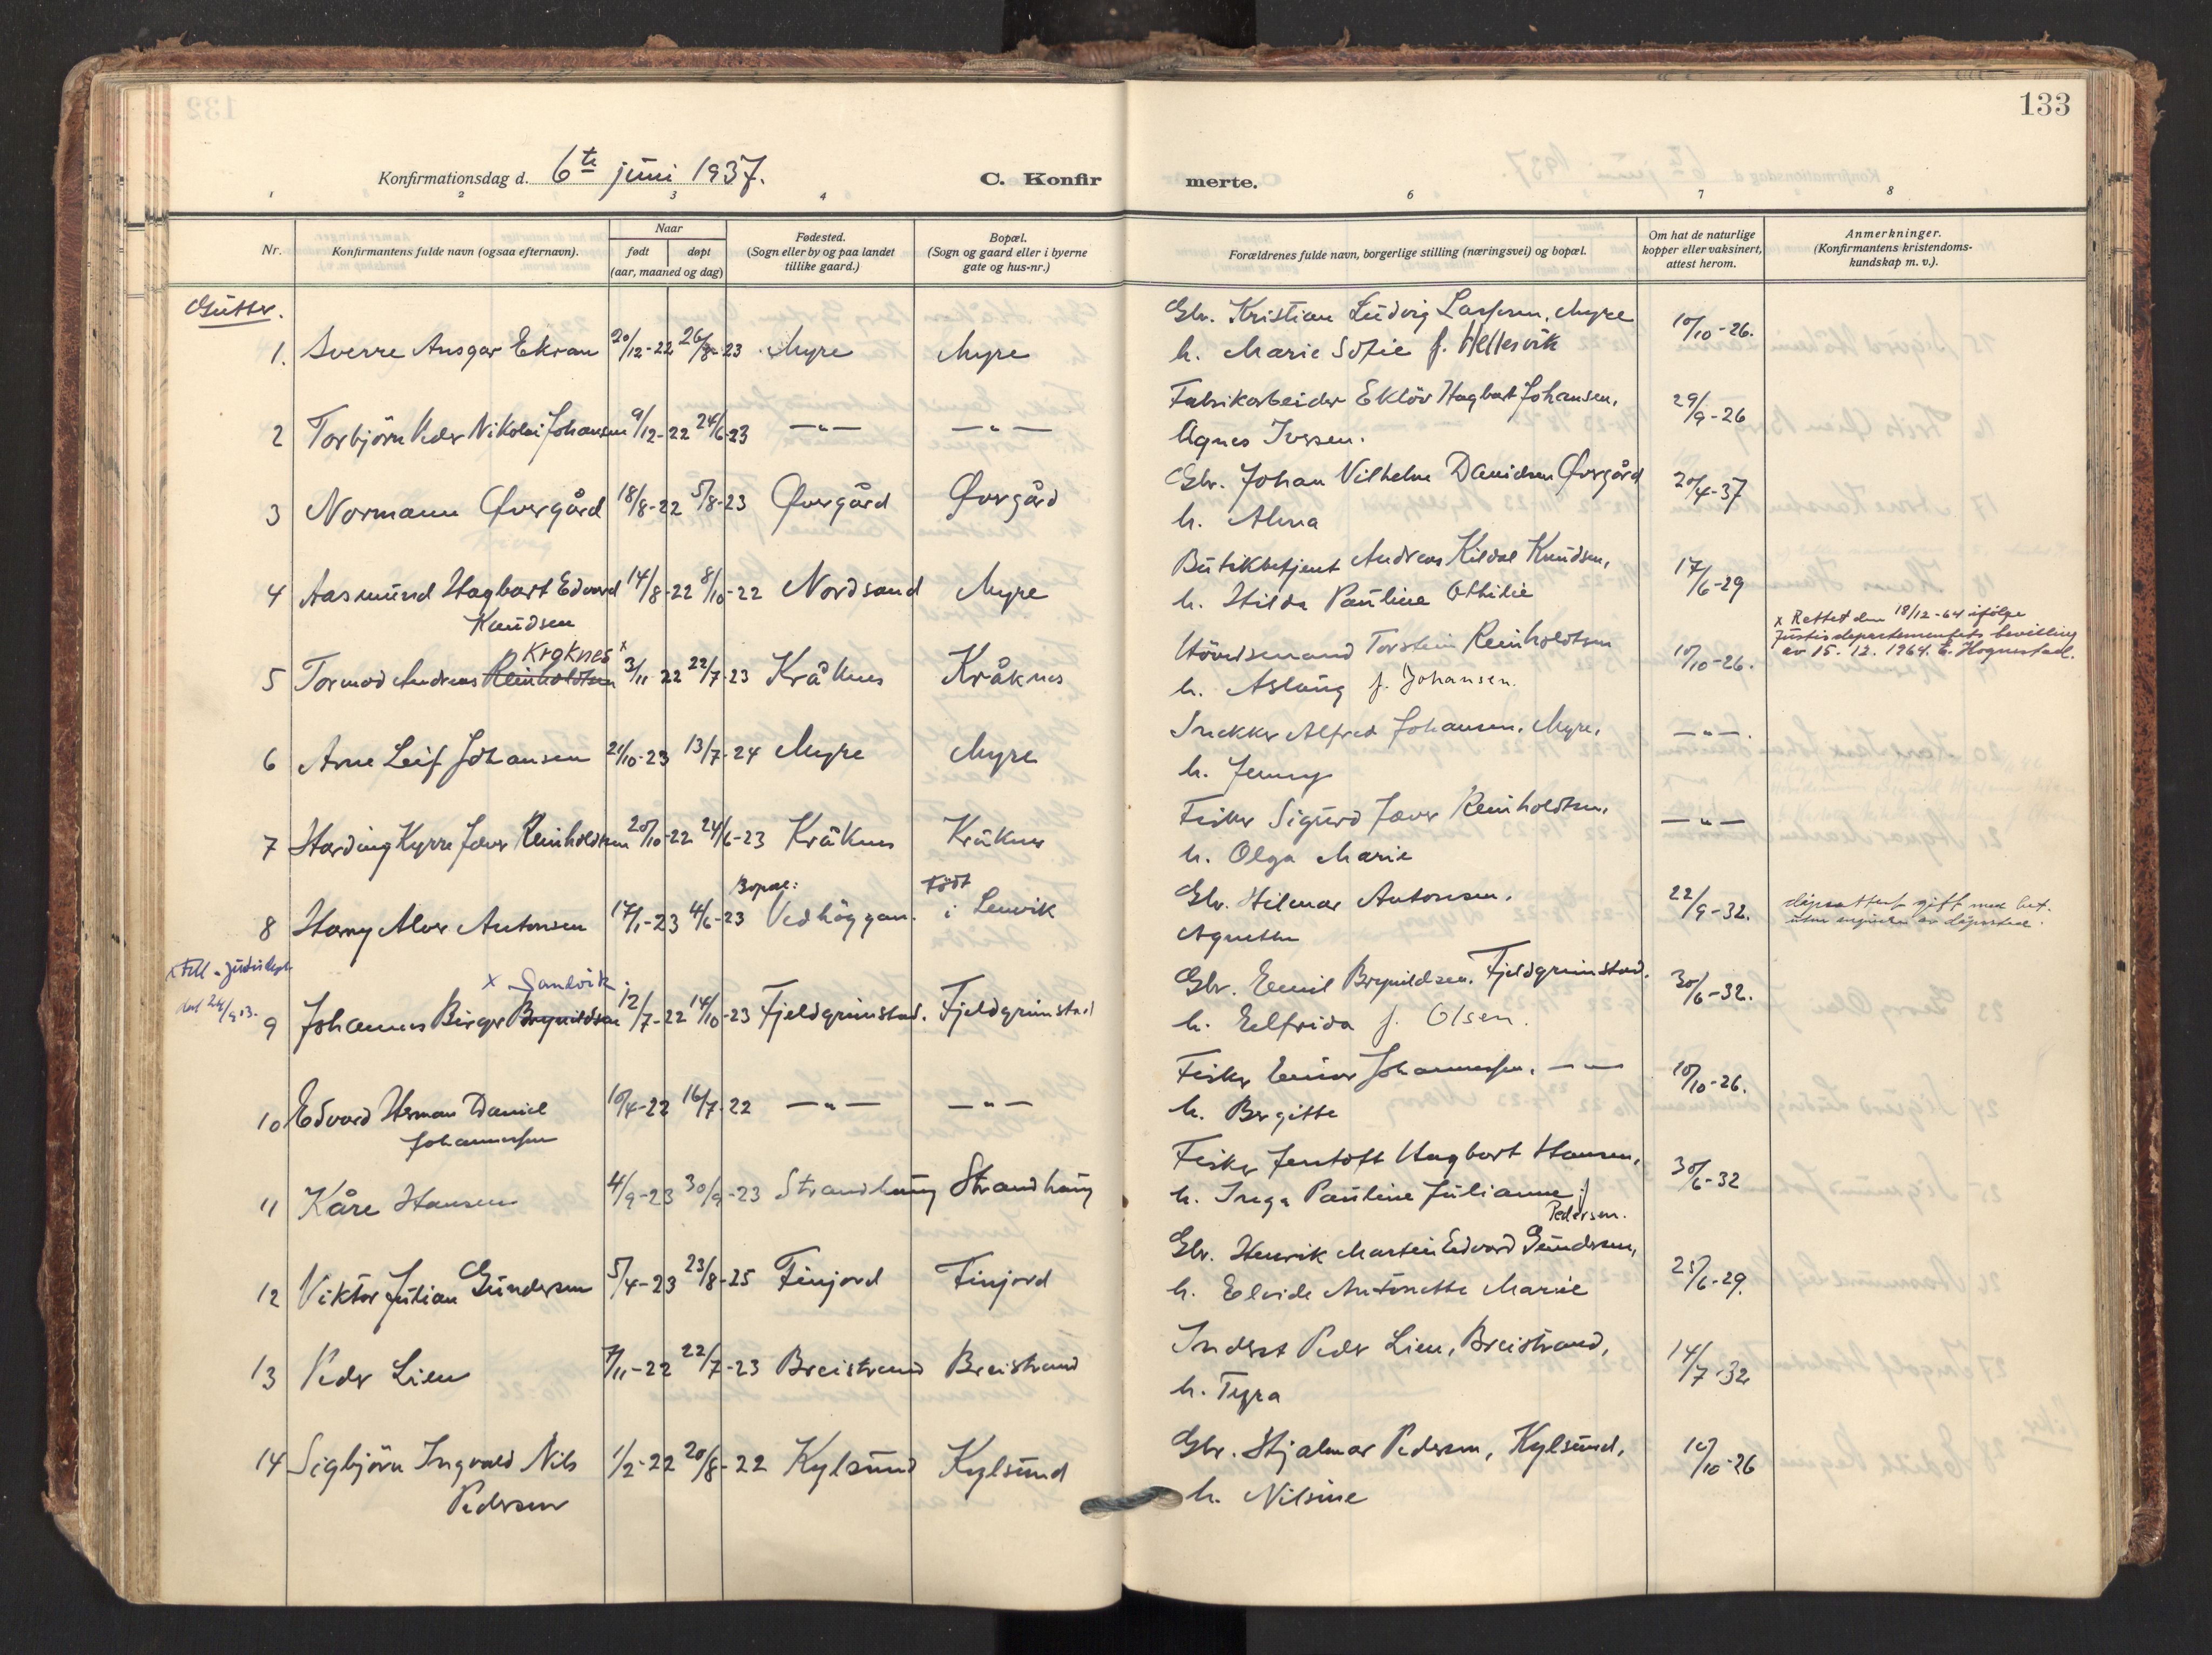 133
Konfirmationsdag d. 6te juni 1937.
C. Konfir merte.
1 2 3 4 6 7 8
Nr.
Konfirmantens fulde navn (ogsaa efternavn).
Naar
født døpt
(aar, maaned og dag)
Fødested.
(Sogn eller by og paa landet
tillike gaard.)
Bopæl.
(Sogn og gaard eller i byerne
gate og hus-nr.)
Forældrenes fulde navn, borgerlige stilling (næringsvei) og bopæl.
Om hat de naturlige
kopper eller vaksinert,
attest herom.
Anmerkninger.
(Konfirmantens kristendoms-
kundskap m. v.).
Gutter.
Gbr. Kristian Ludvig Larssen, Myre 10/10-26.
1. Sverre Ansgar Ekran 20/12-22 26/8-23 Myre Myre
h. Marie Sofie f. Hellesvik
Fabrikarbeider Eklöv Hagbart Johansen, 29/9-26
2 Torbjörn Peder Nikolai Johansen 9/12-22 24/6-23 — " — — " —
Agnes Iversen.
Gbr. Johan Vilhelm Danielsen Øvergård 20/4-37
3 Normann Øvergård 18/8-22 5/8-23 Øvergård Øvergård
h. Alma
Butikbetjent Andreas Kildal Knudsen, 17/6-29
4 Aasmund Hagbart Edvard 14/8-22 8/10-22 Nordsand Myre
Knudsen
h. Hilda Pauline Othilie
x Rettet den 18/12-64 ifølge
Justisdepartementets bevilling
av 15. 12. 1964. E. Hognestad.
Kroknes x
Torstein Reinholdtsen 10/10-26.
5 Tormod Andreas Reinholdtsen 3/11-22 22/7-23 Kråknes Kråknes
h. Aslaug f. Johansen.
Snekker Alfred Johansen, Myre, — " —.
6 Arne Leif Johansen 21/10-23 13/7-24 Myre Myre
h. Jenny
Fisker Sigurd Reinholdtsen, — " —
7 Harding Kyrre Reinholdtsen 20/10-22 24/6-23 Kråknes Kråknes
h. Olga Marie
Bopæl: Født
Gbr. Hilmar Antonsen. 22/9-32.
8 Harry Alvor Antonsen 17/1-23 4/6-23 Vedhöggan. i Lenvik
Agnethe
dåpsattest gitt med
x Sandvik
Gbr. Emil Brynildsen, Fjeldgrimstad. 30/6-32.
9 Johannes Birger Brynildsen 12/7-22 14/10-23 Fjeldgrimstad. Fjeldgrimstad
h. Elfrida f. Olsen.
Fisker Einar Johannessen. — " — 10/10-26.
10 Edvard Herman Daniel 10/4-22 16/7-22 — " — — " —
Johannessen
h. Bergitte
Fisker Jentoft Hagbart Hansen, 30/6-32
11 Kåre Hansen 4/9-23 30/9-23 Strandhaug Strandhaug
h. Inga Pauline Julianne f.
Pedersen.
Gbr. Henrik Martin Edvard Gundersen, 25/6-29.
12 Viktor Julian Gundersen 5/4-23 23/8-25 Finjord Finjord
h. Elvide Antonette Marie
Inderst Peder Lien, Breistrand, 14/7-32
13 Peder Lien 7/11-22 22/7-23 Breistrand Breistrand
h. Tyra
Gbr. Hjalmar Pedersen, Kylsund, 10/10-26
14 Sigbjörn Ingvald Nils 1/2-22 20/8-22 Kylsund Kylsund
Pedersen
h. Nilsine